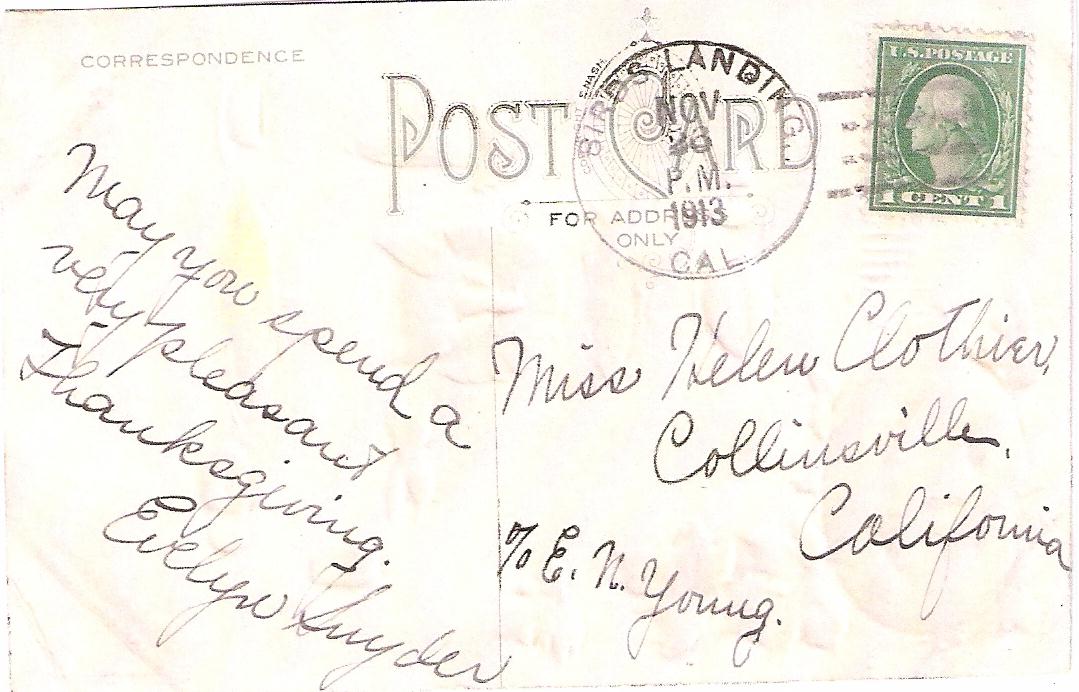 CORRESPONDENCE
POST CARD
FOR ADDRESS
ONLY
BIRDS LANDING.
NOV
26
P.M.
1913
CAL.
U.S. POSTAGE
1 CENT 1
May you spend a
very pleasant
Thanksgiving.
Evelyn Snyder
Miss Helen Clothier,
Collinsville,
California
℅ E. N. Young.